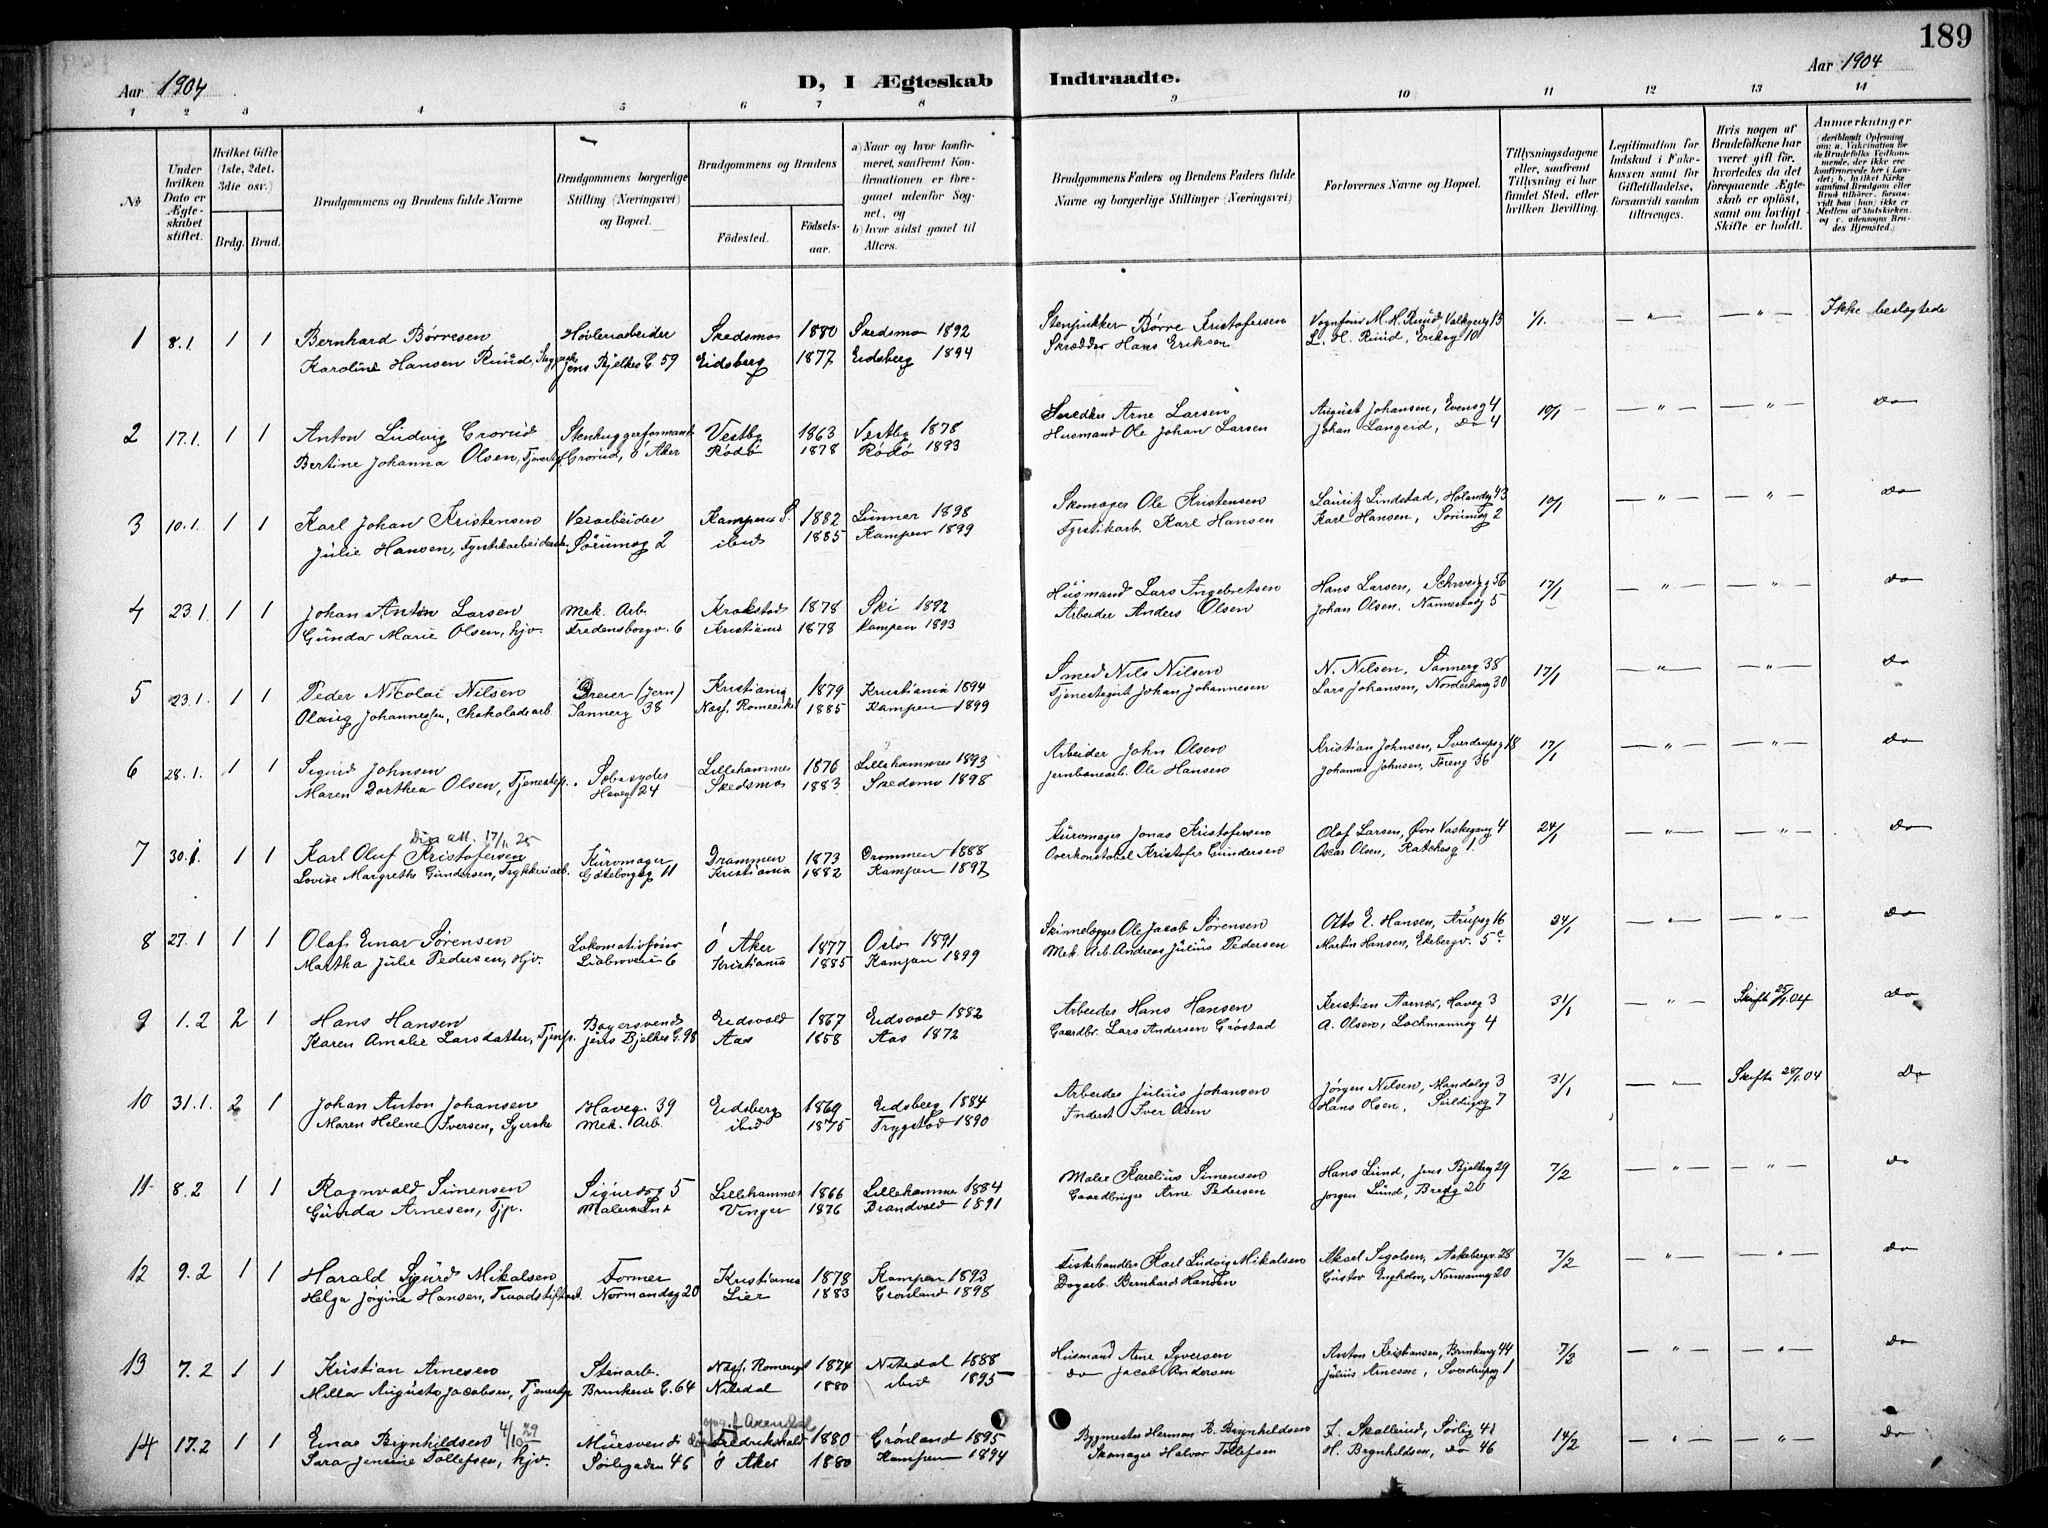 189
Aar 1904
D, I Ægteskab Indtraadte.
Aar 1904
1 2 3 4 5 6 7 8 9 10 11 12 13 14
№
Under hvilken Dato er Ægteskabet stiftet.
Hvilket Gifte (1ste, 2det, 3die osv.)
Brdg. Brud.
Brudgommens og Brudens fulde Navne
Brudgommens borgerlige Stilling (Næringsvei) og Bopæl.
Brudgommens og Brudens
Fødested.
Fødselsaar.
a) Naar og hvor konfirmeret, saafremt Konfirmationen er foregaaet udenfor Sognet, og
b) hvor sidst gaaet til Alters.
Brudgommens Faders og Brudens Faders fulde Navne og borgerlige Stillinger (Næringsvei)
Forlovernes Navne og Bopæl.
Tillysningsdagene eller, saafremt Tillysning ei har fundet Sted, efter hvilken Bevilling.
Legitimation for Indskud i Fakekassen samt for Giftetilladelse, forsaavidt saadan tiltrænges.
Hvis nogen af Brudefolkene har været gift før, hvorledes da det foregaaende Ægteskab er opløst, samt om lovligt Skifte er holdt.
Anmærkninger
(deriblandt Oplysning om: a. Vakcination for de Brudefolks Vedkommende, der ikke ere konfirmerede her i Landet; b. hvilket Kirkesamfund Brudgom eller Brud tilhører, forsaavidt han (hun) ikke er Medlem af Statskirken, og c. udensogns Brudes Hjemsted.)
1 8.1. 1 1 Bernhard Børresen Høvleriarbeider Skedsmo 1880 Skedsmo 1892 Stenpukker Børre Kristofersen Vognfører M. H. Ruud Valkyrieg 13 1/1. — " — — " — Ikke beslægtede
Karoline Hansen Ruud, Jens Bjelkes G. 59 Eidsberg 1877 Eidsberg 1894 Skrædder Hans Eriksen L. H. Ruud, Eriksg 10
2 17.1. 1 1 Anton Ludvig Grorud Stenhuggerformand Vestby 1863 Vestby 1878 Snedker Arne Larsen August Johansen, Evensg 4 10/1 — " — — " — do
Bertine Johanna Olsen, Tjenestp. Grorud, Ø Aker Rødø 1878 Rødø 1893 Husmand Ole Johan Larsen Johan Langeid, do 4
3 10.1. 1 1 Karl Johan Kristensen Veiarbeider Kampens S. 1882 Lunner 1898 Skomager Ole Kristensen Lauritz Lindstad, Hølandsg 43 10/1 — " — — " — do
Julie Hansen, Fyrstikarbeiderske Sørumsg 2 ibid 1885 Kampen 1899 Fyrstikarb. Karl Hansen Karl Hansen, Sørumsg 2
4 23.1. 1 1 Johan Anton Larsen Mek. Arb. Krakstad 1878 Ski 1892 Husmand Lars Ingebretsen Hans Larsen, Schweigg 56 17/1 — " — — " — do
Gunda Marie Olsen, hjv. Fredensborgv. 6 Kristiania 1878 Kampen 1893 Arbeider Anders Olsen Johan Olsen, Nannestadg 5
5 23.1. 1 1 Peder Nicolai Nilsen Dreier (jern) Kristiania 1879 Kristiania 1894 Smed Nils Nilsen N. Nilsen, Sannerg 38 17/1 — " — — " — do
Olaug Johannessen, Chokoladearb. Sannerg 38 Næs, Romerike 1885 Kampen 1899 Tjenestegut Johan Johannesen Lars Johansen, Norderhovg 30
6 28.1. 1 1 Sigurd Johnsen Sæbesyder Lillehammer 1876 Lillehammer 1893 Arbeider John Olsen Kristian Johnsen, Sverdrupsg 18 17/1 — " — — " — do
Maren Dorthea Olsen, Tjenestp. Haveg 24 Skedsmo 1883 Skedsmo 1898 Jernbanearb. Ole Hansen Johannes Johnsen, Toreng 36
7 30.1. 1 1 17/11 25 Karl Oluf Kristofersen Kurvmager Drammen 1873 Drammen 1888 Kurvmager Jonas Kristofersen Olaf Larsen, Øvre Vaskegang 4 24/1 — " — — " — do
Lovise Margrethe Gundersen, Trykkeriarb. Gøteborgsg 11 Kristiania 1882 Kampen 1897 Overkonstabel Kristofer Gundersen Oscar Olsen, Ratchesg 1.
8 27.1 1 1 Olaf Einar Sørensen Lokomotivfyrer Ø Aker 1877 Oslo 1891 Skinnelægger Ole Jacob Sørensen Otto E. Hansen, Arupsg 16 24/1 — " — — " — do
Martha Julie Pedersen, Hjv. Liabroveien 6 Kristiania 1885 Kampen 1899 Mek. Arb. Andreas Julius Pedersen Martin Hansen, Ekebergv. 5c
9 1.2 2 1 Hans Hansen Bryersvend Eidsvold 1867 Eidsvold 1882 Arbeider Hans Hansen Kristian Aarnes, Haveg 3 31/1 — " — Skifte 25/1.04 do
Karen Amalie Larsdatter, Tjenp. Jens Bjelkes G. 98 Aas 1858 Aas 1872 Gaardbr. Lars Andersen Grøstad A. Olsen, Lochmannsg 4
10 31.1. 2 1 Johan Anton Johansen Haveg. 39 Eidsberg 1869 Eidsberg 1884 Arbeider Julius Johansen Jørgen Nilsen, Mandalsg 3 31/1 — " — Skifte 28/1.04 do
Maren Helene Iversen, Syerske Mek. Arb. ibid 1875 Trygstad 1890 Inderst Iver Olsen Hans Olsen, Seildugsg 7
11 8.2 1 1 Ragnvald Simensen Sigurdsg 5 Lillehammer 1866 Lillehammer 1884 Maler Karelius Simensen Hans Lund, Jens Bjelkesg 29 7/2 — " — — " — do
Gunda Arnesen, Tjp. Malersvend Vinger 1876 Brandvold 1891 Gaardbruger Arne Pedersen Jørgen Lund, Bredg 20
12 9.2 1 1 Harald Sigurd Mikalsen Former Kristiania 1878 Kampen 1893 Fiskehandler Karl Ludvig Mikalsen Aksel Sigolsen, Aakebergv. 28 7/2 — " — — " — do
Helga Jørgine Hansen, Traadstiftarb. Normandsg 20 Lier 1883 Grønland 1898 Dagarb. Bernhard Hansen Gustav Engholm, Normannsg 20
13 7.2 1 1 Kristian Arnesen Stenarb. Næs, Romerige 1874 Nitedal 1888 Husmand Arne Syversen Anton Kristiansen, Brinkeng 44 7/2 — " — — " — do
Milla Augusta Jacobsen, Tjenestp Brinkens G. 64 Nitedal 1880 ibid 1895 do Jacob Andersen Julius Arnesen, Sverdrupsg 1
14 17.2 1 1 Einar Brynhildsen 4/10 29 Mursvend opg. f. Arendal Fredrikshald 1880 Grønland 1895 Bygmester Herman B. Brynhildsen F. Skallerud, Sørlig 41 14/2 — " — — " — do
Sara Jensine Tollefsen, hjv. Sørligaden 46 Ø Aker 1880 Kampen 1894 Skomager Halvor Tollefsen H. Brynhildsen, do 46